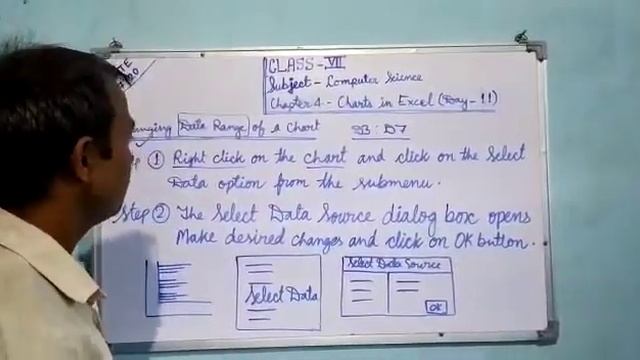 CLASS - VII
Subject - Computer Science
Chapter 4 - Charts in Excel (Day - 11)
Data Range of a Chart
① Right click on the chart and click on the Select
Data option from the submenu.
Step ② The Select Data Source dialog box opens
Make desired changes and click on OK button.
Select Data
Select Data Source
OK